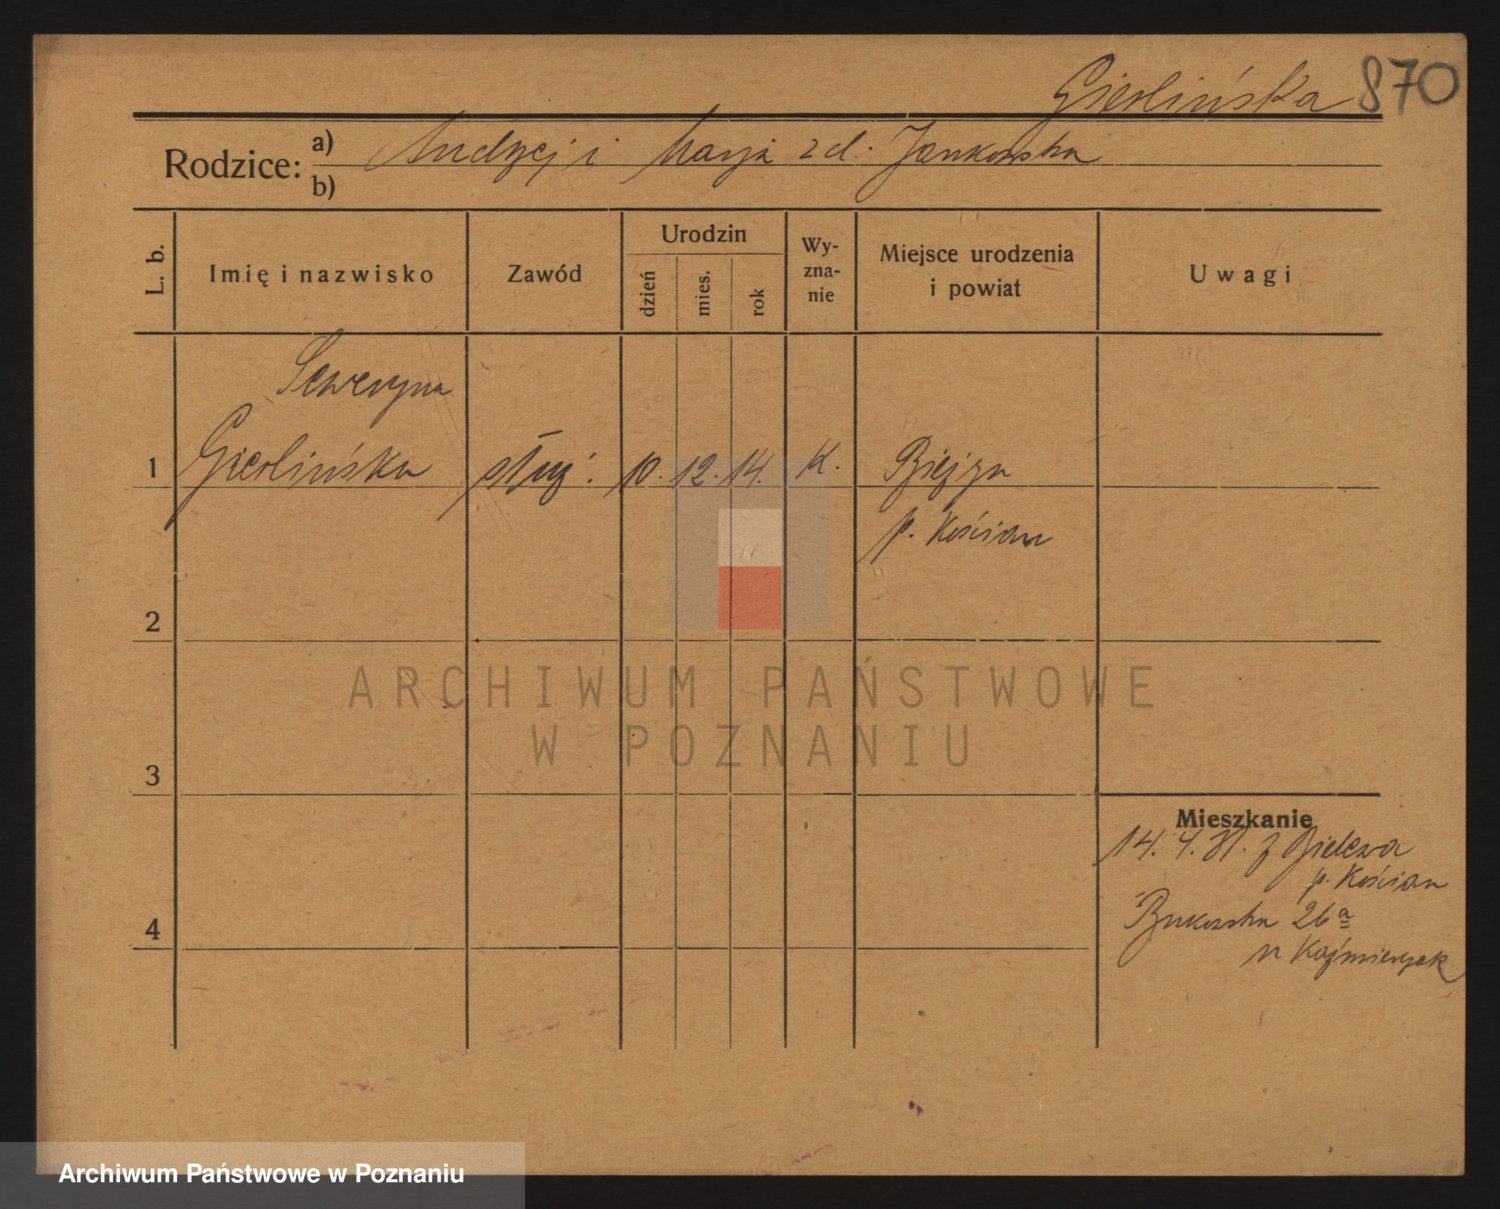 Gierlińska 870
Rodzice: a) Andrzej i Marja zd. Jankowska
b)
L. b.
Imię i nazwisko
Zawód
Urodzin
dzień
mies.
rok
Wy-
zna-
nie
Miejsce urodzenia
i powiat
Uwagi
Seweryna
1 Gierlińska służ: 10. 12. 14. K.
p. Kościan
2
ARCHIWUM PAŃSTWOWE
W POZNANIU
3
Mieszkanie
14. 4. 31. z Bielewa
p. Kościan
4 Bukowska 26a
u Kaźmierczak
Archiwum Państwowe w Poznaniu